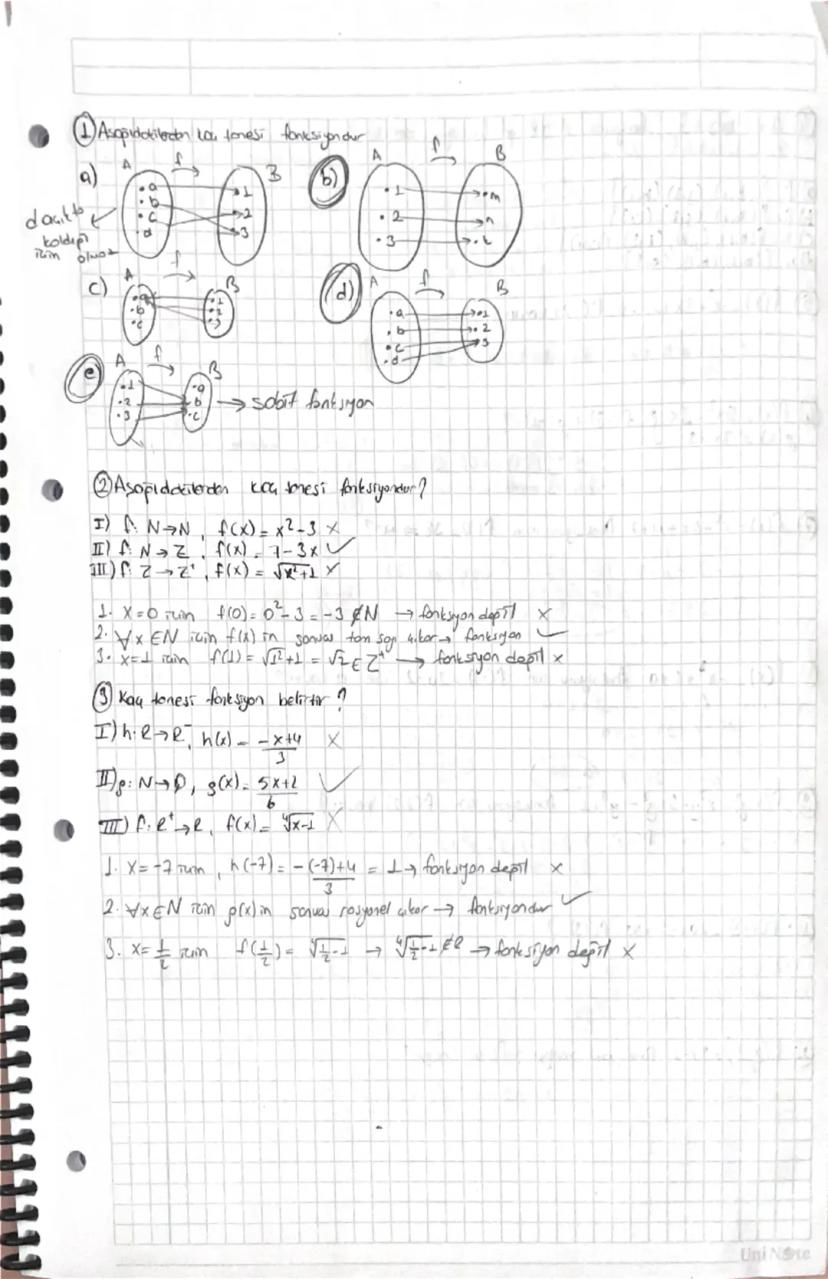 ① Aşağıdakilerden kaç tanesi fonksiyondur
a) A f B
.a
.b
.c
.d
.1
.2
.3
d açıkta kaldığı için olmaz
b) A f B
.1 .m
.2 .n
.3 .k
c) A f B
.a .1
.b .2
.c .3
d) A f B
.a .1
.b .2
.c .3
.d
e) A f B
.1 .a
.2 .b
.3 .c
→ sabit fonksiyon
② Aşağıdakilerden kaç tanesi fonksiyondur?
I) f: N→N, f(x) = x²-3 ×
II) f: N→Z, f(x) = 7-3x ✓
III) f: Z→Z⁺, f(x) = √x²+1 ×
1. x=0 için f(0)=0²-3=-3 ∉N → fonksiyon değil ×
2. ∀x∈N için f(x) in sonucu tam sayı çıkar→ fonksiyon ✓
3. x=1 için f(1)=√1²+1 = √2 ∈ Z⁺ → fonksiyon değil ×
③ Kaç tanesi fonksiyon belirtir?
I) h: R→R⁻, h(x) = -x+4/3 ×
II) g: N→Q, g(x) = 5x+2/6 ✓
III) f: R⁺→R, f(x) = ⁴√x-1 ×
1. x=-7 için, h(-7) = -(-7)+4/3 = 1 → fonksiyon değil ×
2. ∀x∈N için g(x)in sonucu rasyonel çıkar → fonksiyondur ✓
3. x=1/2 için f(1/2) = ⁴√1/2-1 → ⁴√1/2-1 ∉R → fonksiyon değil ×
UniNote